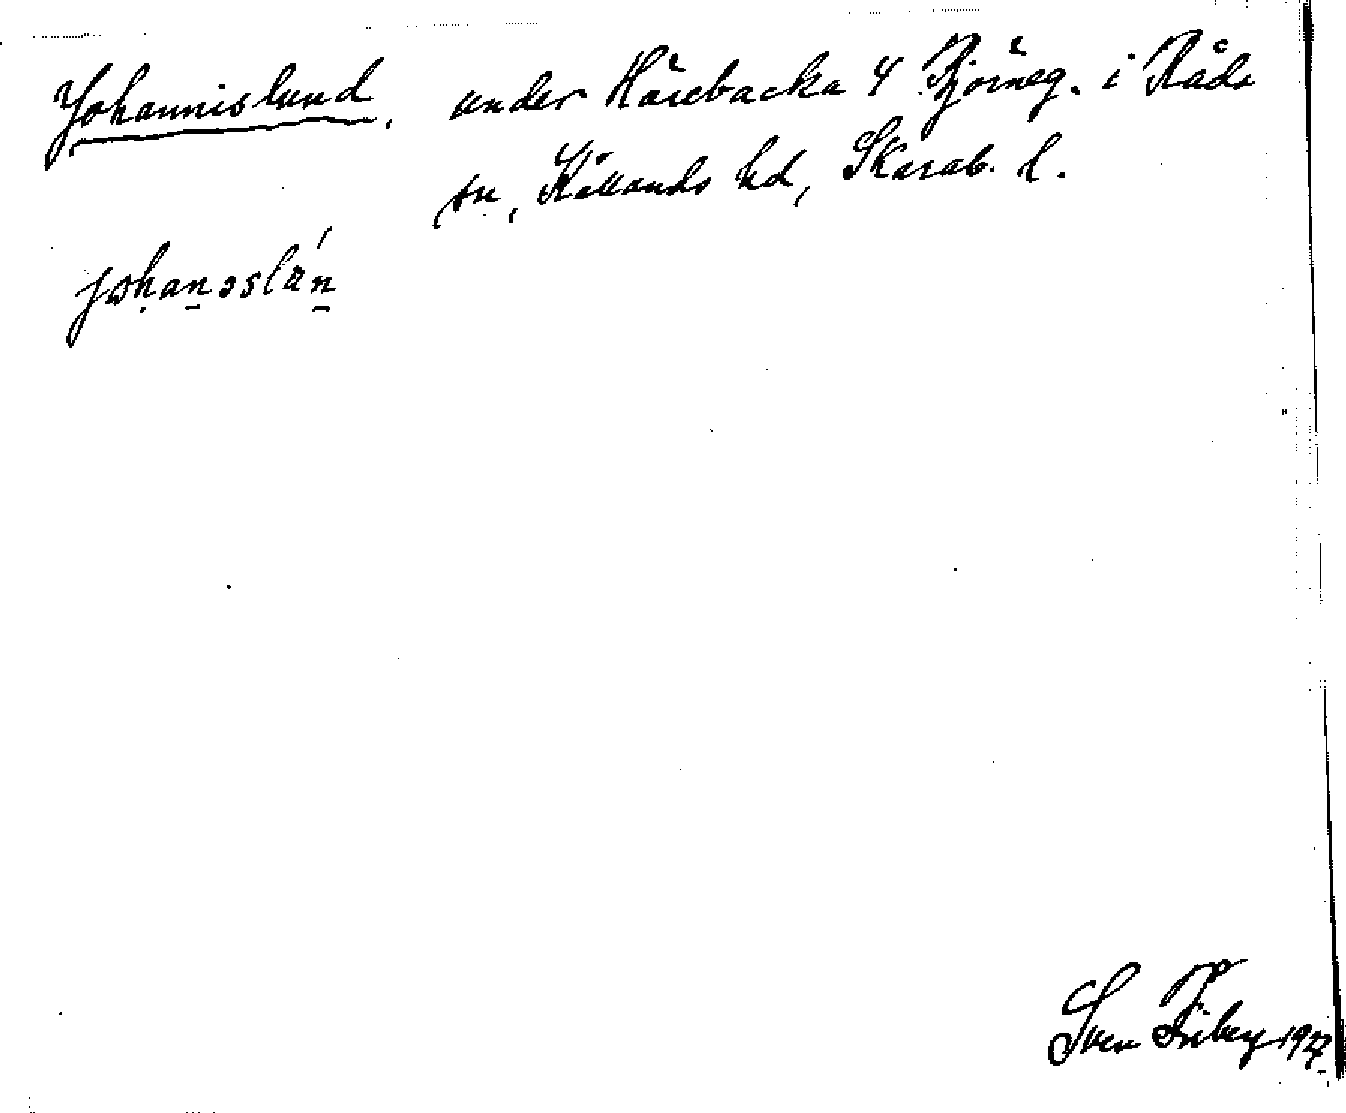 Johannislund, under Häsebacka 4 Björneg. i Råda
sn, Kållands hd, Skarab. l.
johanəslán
Sven Friberg 1927